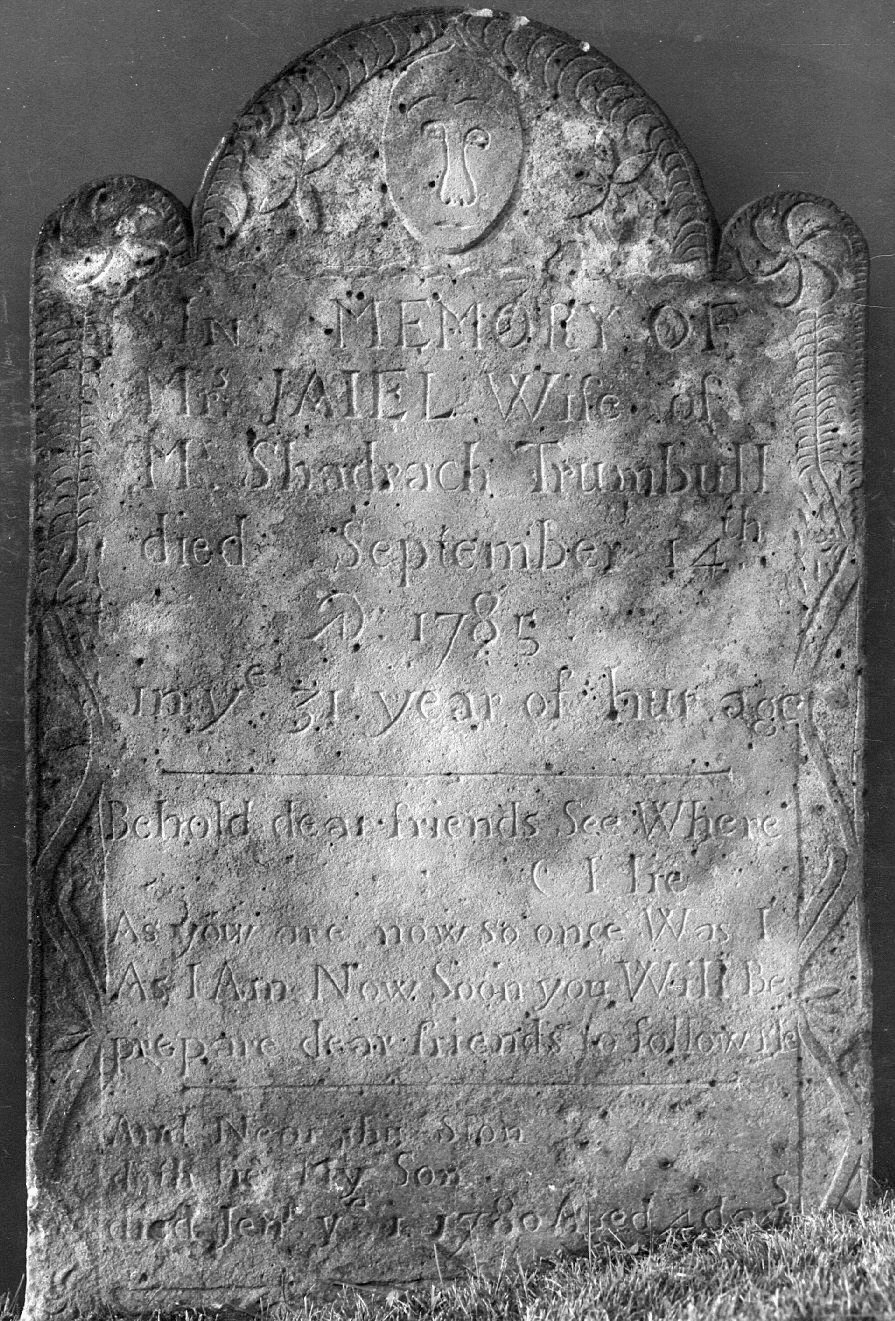 IN MEMORY OF
Mrs JAIEL Wife of
Mr Shadrach Trumbull
died September 14th
AD 1785
in ye 31 year of hur age
Behold dear friends See Where
( I lie
As you are now so once Was I
As I Am Now Soon you Will Be
prepare dear friends to follow Me
And Near this Ston
doth lie My Son
died Jenr ye 1 1780 Aged 4 days